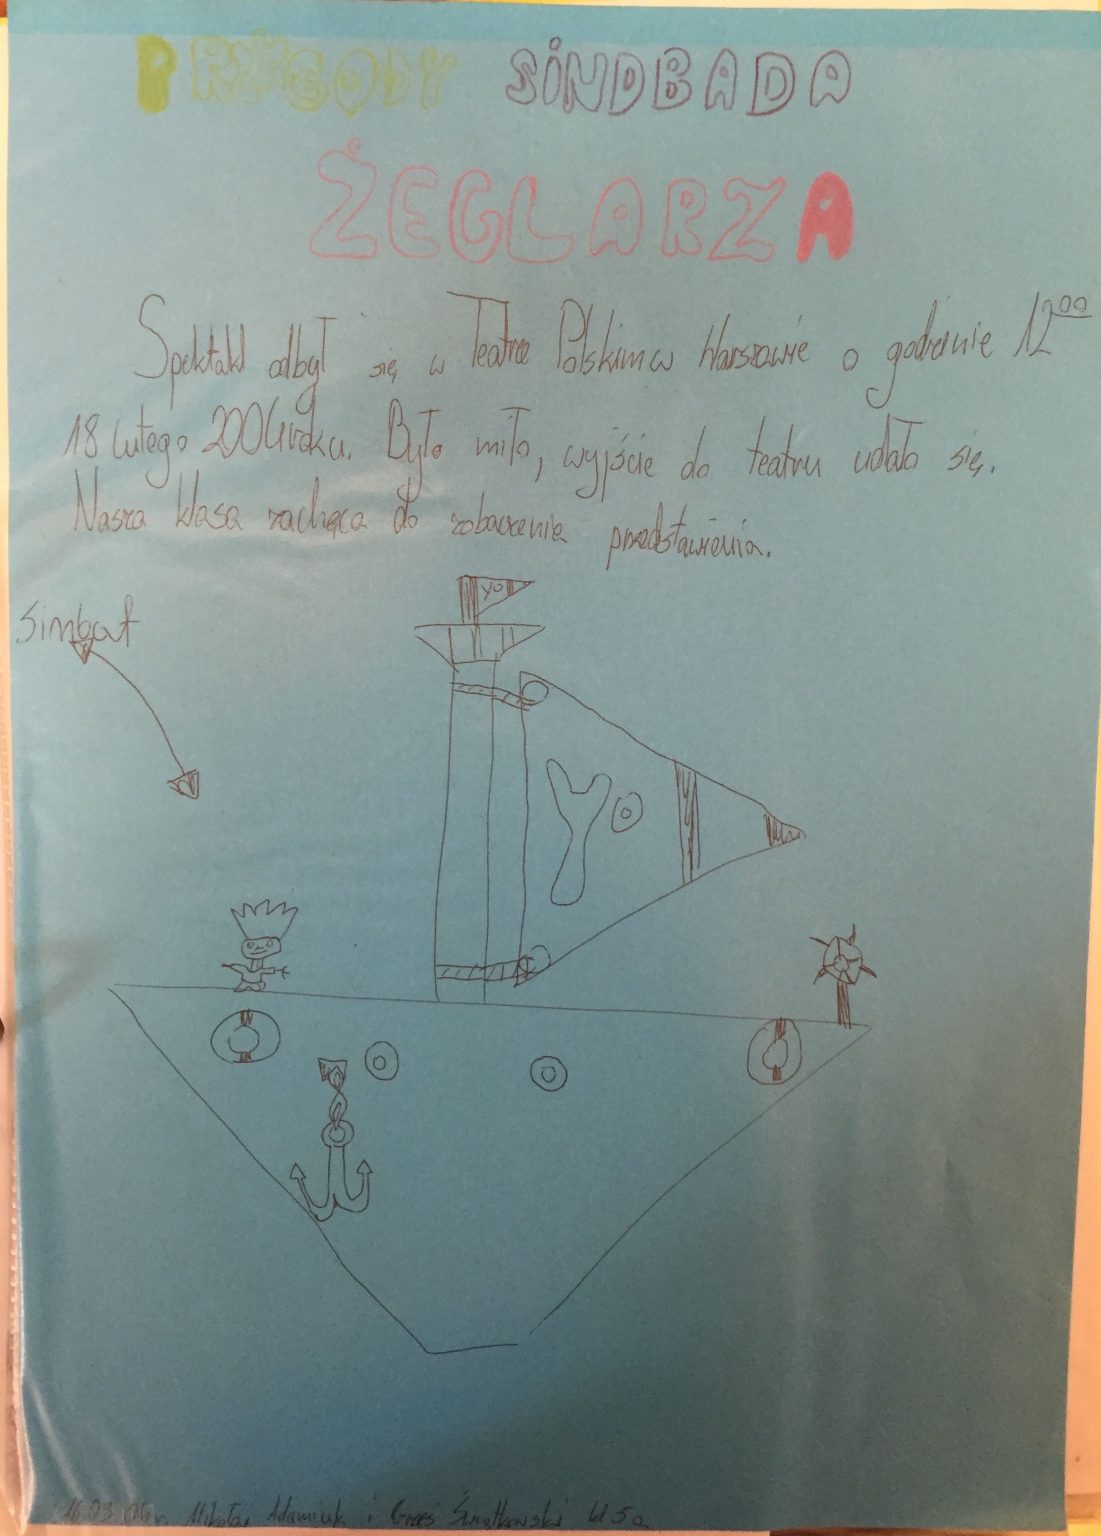 PRZYGODY SINDBADA
ŻEGLARZA
Spektakl odbył się w Teatrze Polskim w Warszawie o godzinie 12⁰⁰
18 lutego 2004 roku. Było miło, wyjście do teatru udało się.
Nasza klasa zachęca do zobaczenia przedstawienia.
YO
Simbat
YO
16.03.04r. Mikołaj Adamiuk i Grześ Świątkowski kl 5a